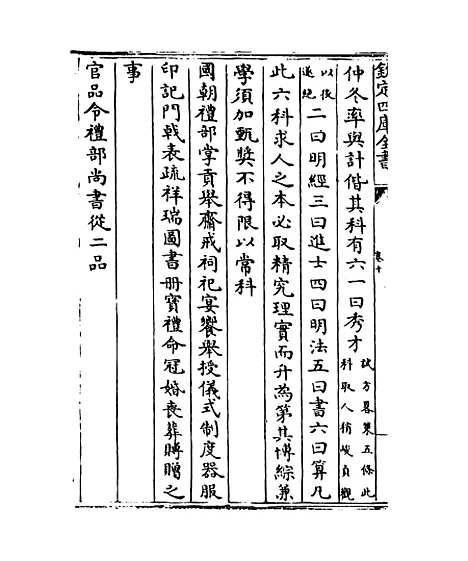 欽定四庫全書
卷十
仲冬率與計偕其科有六一曰秀才試方畧策五條此科取人稍峻貞觀
以後遂絶二曰明經三曰進士四曰明法五曰書六曰算凡
此六科求人之本必取精究理實而升為第其博綜兼
學須加甄奬不得限以常科
國朝禮部掌貢舉齋戒祠祀宴饗舉授儀式制度器服
印記門戟表疏祥瑞圖書册寶禮命冠婚喪葬賻贈之
事
官品令禮部尚書從二品